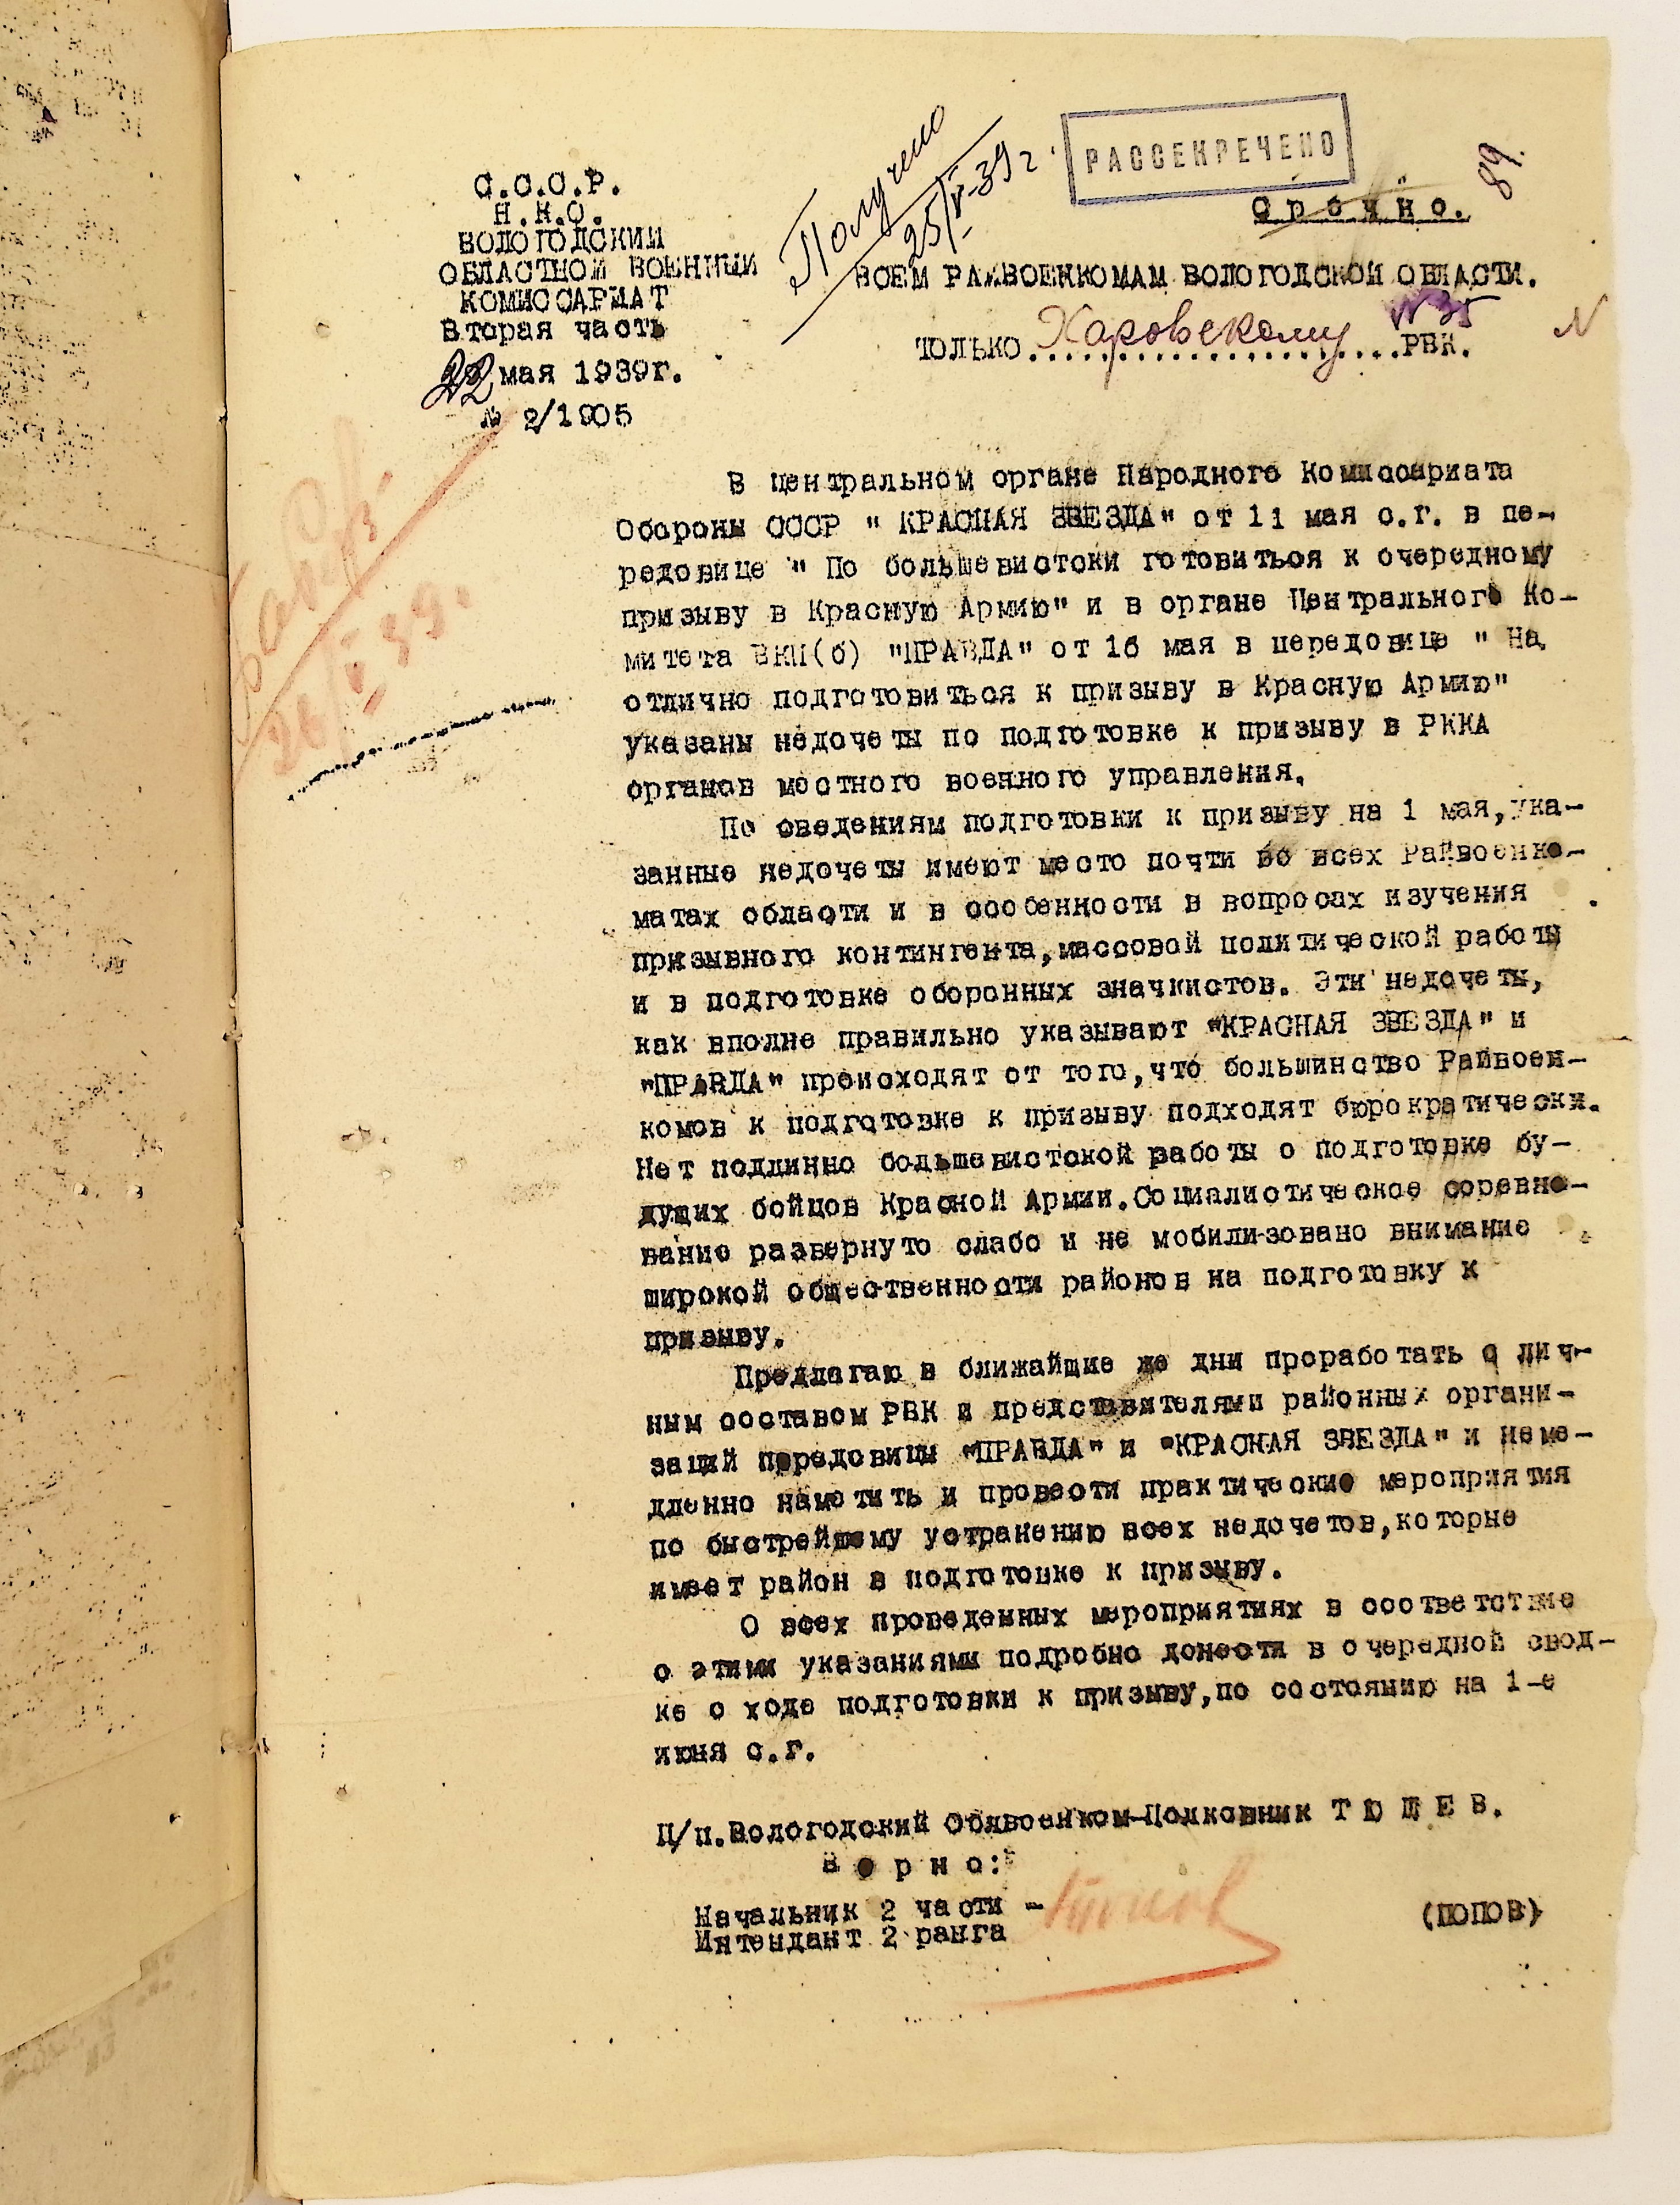 РАССЕКРЕЧЕНО
89.
Срочно.
Получено
25/V-39 г.
С.С.С.Р.
Н.К.О.
ВОЛОГОДСКИЙ
ОБЛАСТНОЙ ВОЕННЫЙ
КОМИССАРИАТ
Вторая часть
22 мая 1939г.
№ 2/1905
ВСЕМ РАЙВОЕНКОМАМ ВОЛОГОДСКОЙ ОБЛАСТИ.
№35
ТОЛЬКО Харовскому РВК.
26/V 39.
В центральном органе Народного Комиссариата
Обороны СССР " КРАСНАЯ ЗВЕЗДА" от 11 мая с.г. в пе-
редовице " По большевистски готовиться к очередному
призыву в Красную Армию" и в органе Центрального Ко-
митета ВКП(б) "ПРАВДА" от 16 мая в передовице " На
отлично подготовиться к призыву в Красную Армию"
указаны недочеты по подготовке к призыву в РККА
органов местного военного управления.
По сведениям подготовки к призыву на 1 мая, ука-
занные недочеты имеют место почти во всех Райвоенко-
матах области и в особенности в вопросах изучения
призывного контингента, массовой политической работы
и в подготовке оборонных значкистов. Эти недочеты,
как вполне правильно указывают "КРАСНАЯ ЗВЕЗДА" и
"ПРАВДА" происходят от того, что большинство Райвоен-
комов к подготовке к призыву подходят бюрократически.
Нет подлинно большевистской работы о подготовке бу-
дущих бойцов Красной Армии. Социалистическое соревно-
вание развернуто слабо и не мобилизовано внимание
широкой общественности районов на подготовку к
призыву.
Предлагаю в ближайшие же дни проработать с лич-
ным составом РВК и представителями районных органи-
заций передовицы "ПРАВДА" и "КРАСНАЯ ЗВЕЗДА" и неме-
дленно наметить и провести практические мероприятия
по быстрейшему устранению всех недочетов, которые
имеет район в подготовке к призыву.
О всех проведенных мероприятиях в соответствие
с этими указаниями подробно донести в очередной свод-
ке о ходе подготовки к призыву, по состоянию на 1-е
июня с.г.
П/п. Вологодский Облвоенком-Полковник Т Ю Щ Е В.
В е р н о:
Начальник 2 части -
Интендант 2 ранга
(ПОПОВ)